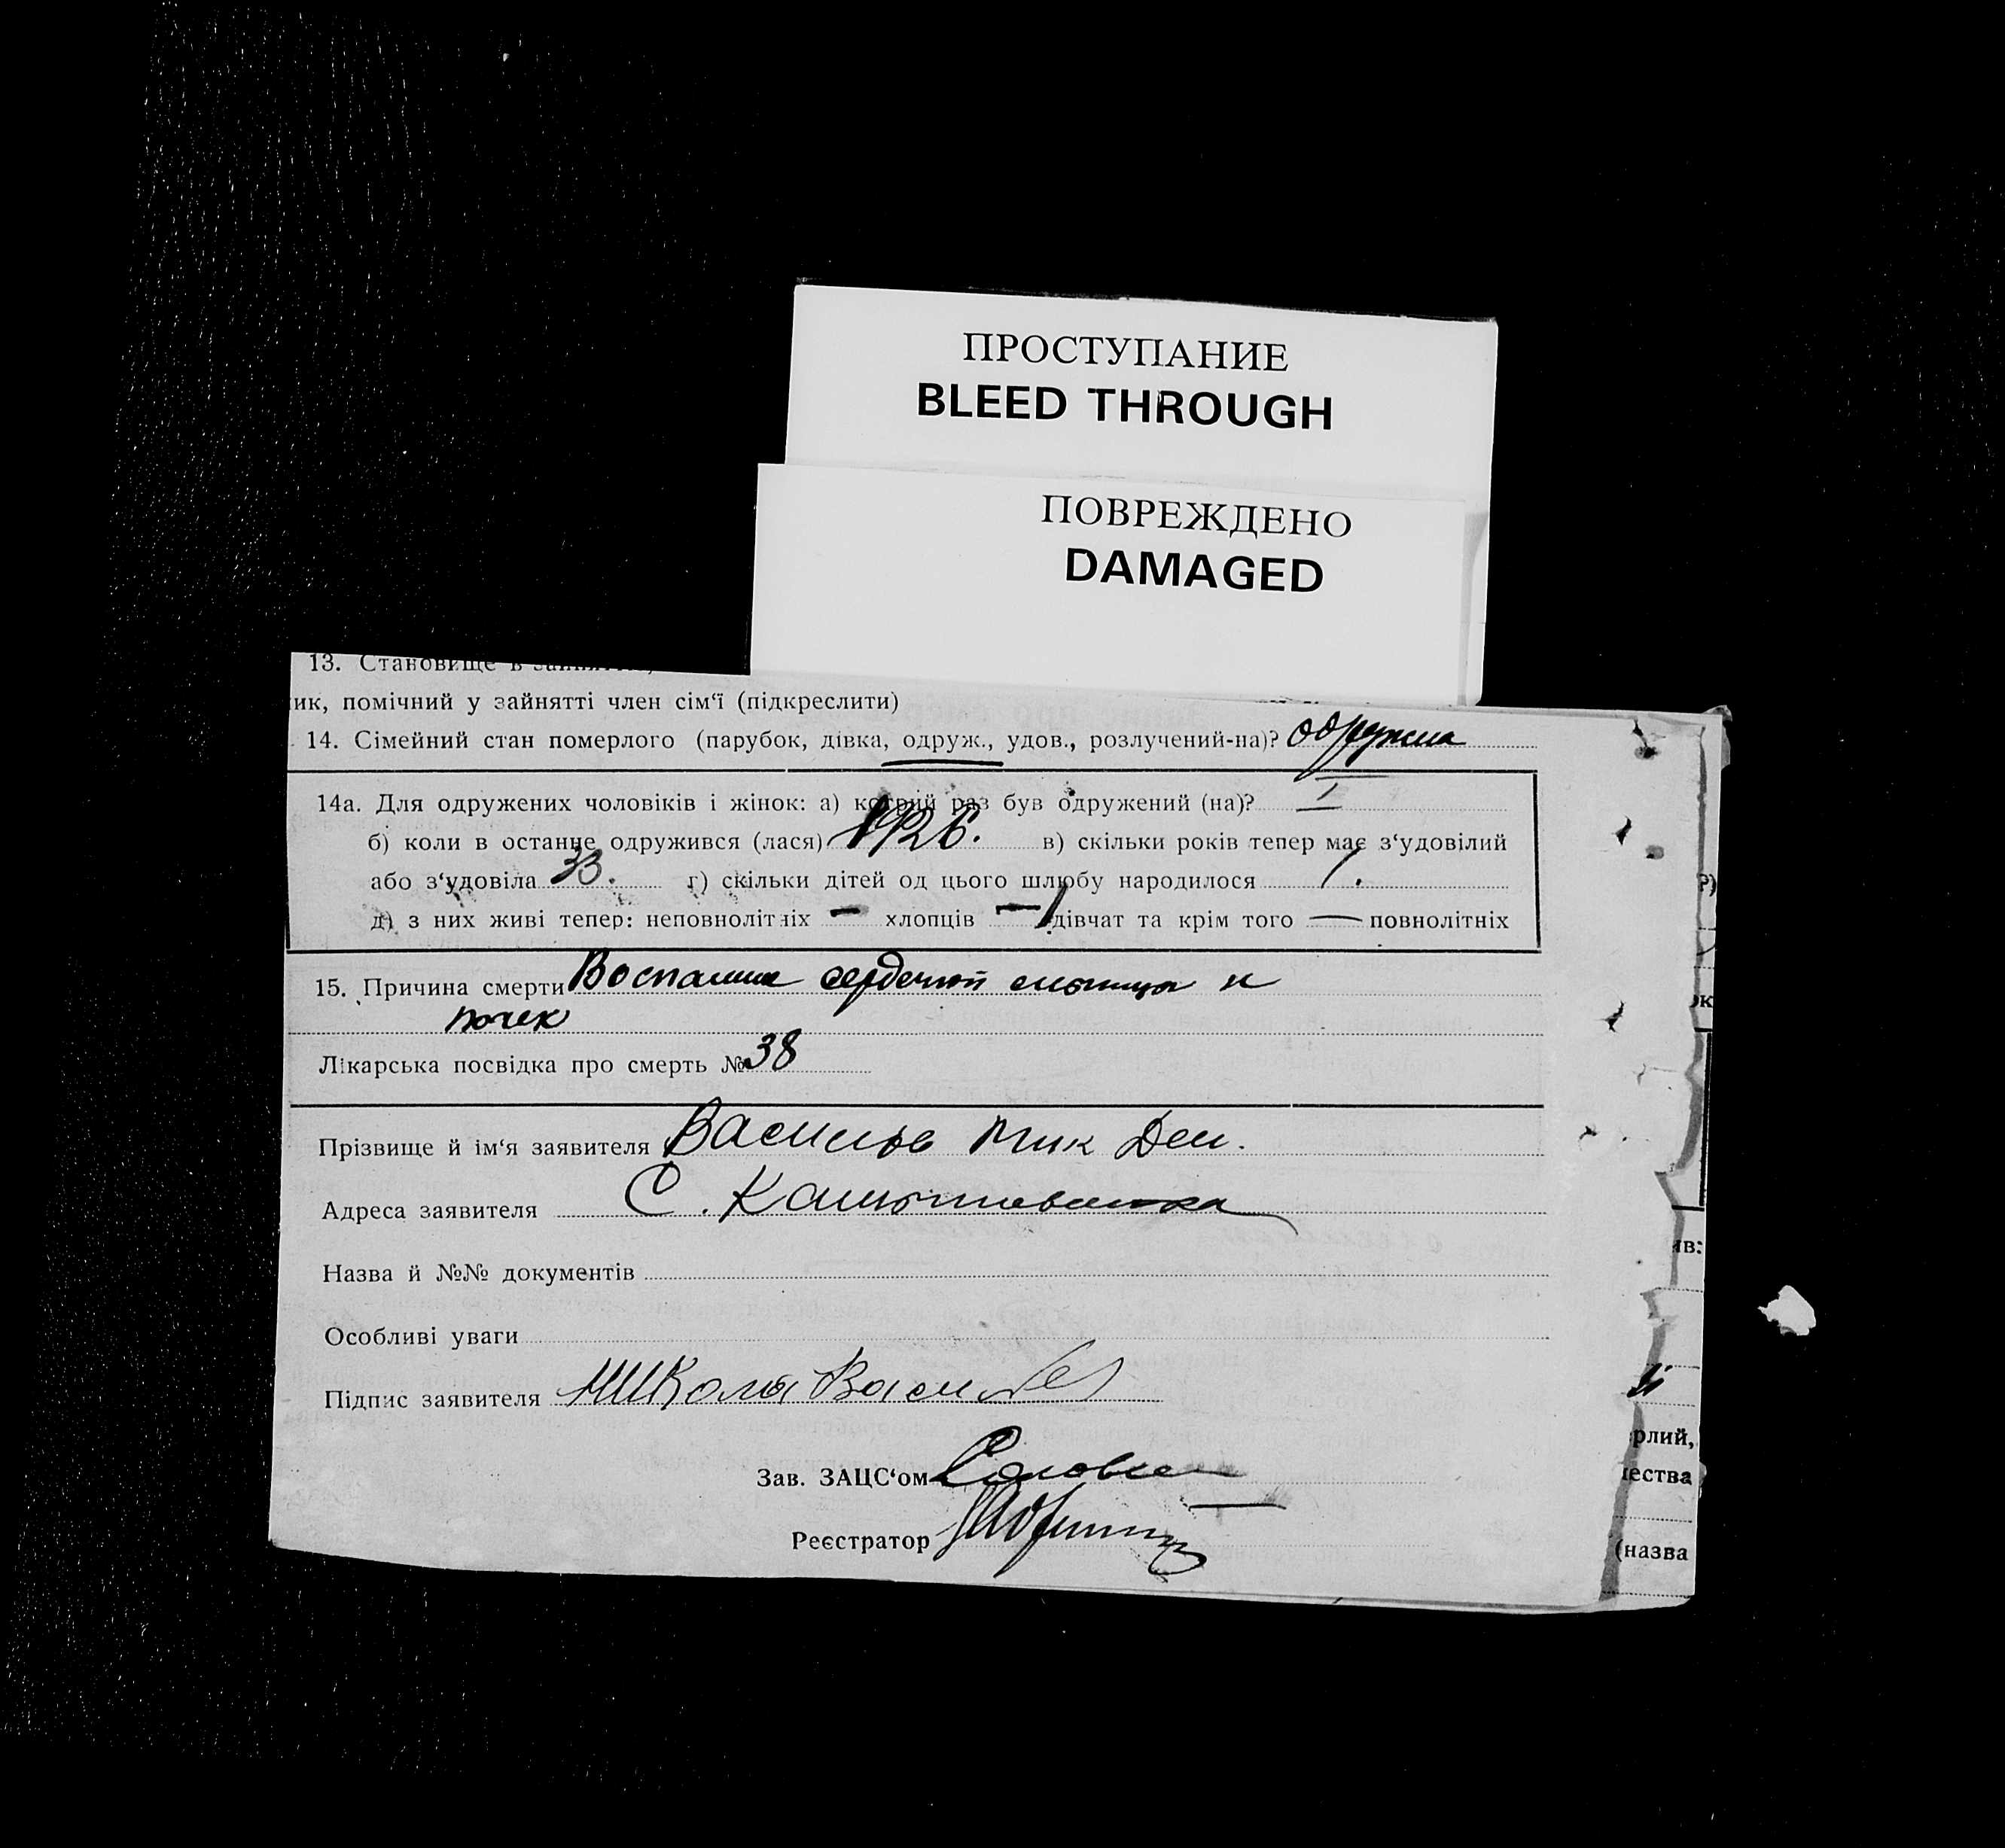 ПРОСТУПАНИЕ
BLEED THROUGH
ПОВРЕЖДЕНО
DAMAGED
13. Становище в
ик, помічний у зайнятті член сім‘ї (підкреслити)
14. Сімейний стан померлого (парубок, дівка, одруж., удов., розлучений-на)?
14а. Для одружених чоловіків і жінок: а) котрий раз був одружений (на)? I
б) коли в останнє одружився (лася) 1926. в) скільки років тепер має з‘удовілий
або з‘удовіла 33. г) скільки дітей од цього шлюбу народилося 1.
д) з них живі тепер: неповнолітніх — хлопців — 1 дівчат та крім того — повнолітніх
15. Причина смерти Воспаление сердечной мышцы и
почек
Лікарська посвідка про смерть № 38
Прізвище й ім‘я заявителя Васильев Ник Дем.
Адреса заявителя С.
Назва й №№ документів
Особливі уваги
Підпис заявителя Никола Василев
Зав. ЗАЦС‘ом
Реєстратор
рлий,
чества
(назва